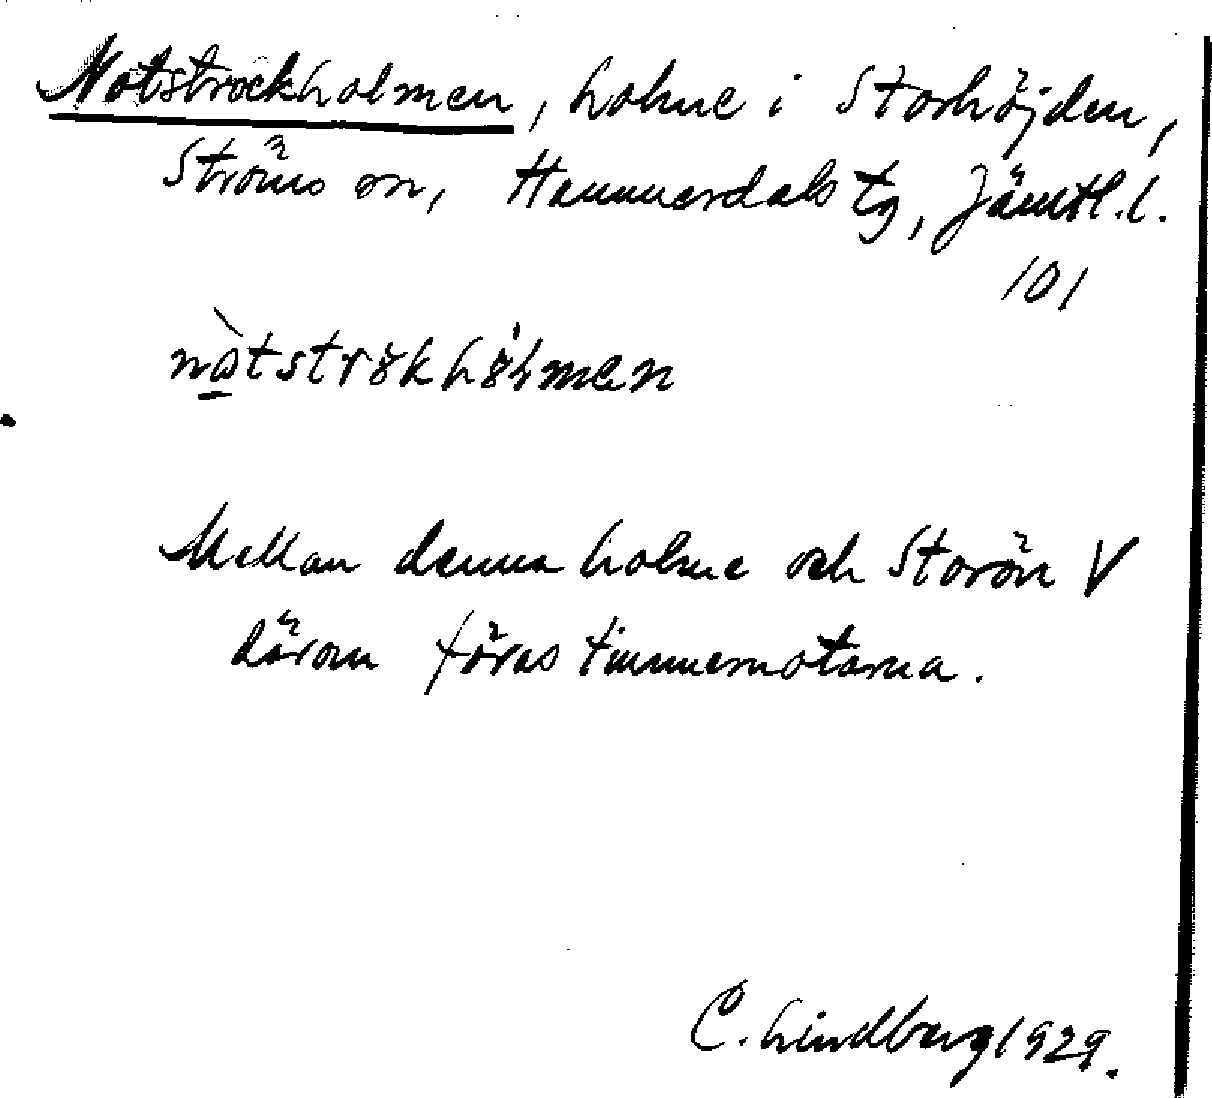 Notstrockholmen, holme i Storhöjden,
Ströms sn, Hammerdals tg, Jämtl. l.
101
nòtstrøkhølmen
Mellan denna holme och Storön V
därom föras timmernotarna.
C. Lindberg 1929.